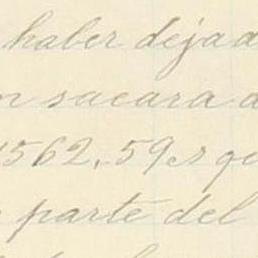 haber dejad
n sacara a
1562,59 es qu
parte del